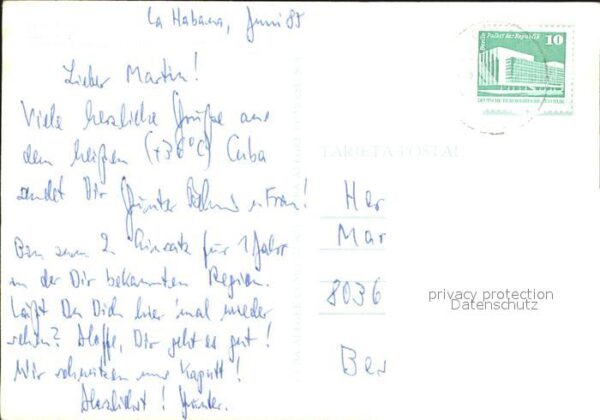 La Habana, Juni 85
Lieber Martin!
Viele herzliche Grüße aus
dem heißen (+36°C) Cuba
sendet Dir Günter u. Frau!
Bin zum 2. Einsatz für 1 Jahr
in der Dir bekannten Region.
Läßt Du Dich hier 'mal wieder
sehen? Hoffe, Dir geht es gut!
Wir schwitzen uns kaputt!
Herzlichst! Günter.
Berlin Palast der Republik
10
DEUTSCHE DEMOKRATISCHE REPUBLIK
TARJETA POSTAL
Her
Mar
8036
Ber
privacy protection
Datenschutz